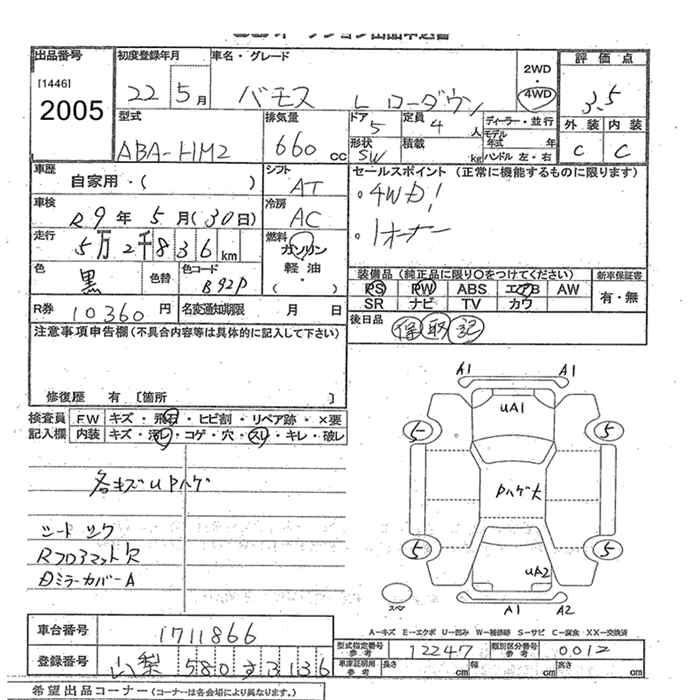 出品番号
[1446]
2005
初度登録年月
22 5月
車名・グレード
バモス L ローダウン
2WD
・
4WD
評価点
3.5
外装 内装
C C
型式
ABA-HM2
排気量
660 cc
ドア
5
定員
4 人
形状
SW
積載
kg
ディーラー・並行
モデル年式 年
ハンドル 左・右
車歴
自家用・( )
シフト
AT
セールスポイント (正常に機能するものに限ります)
・4WD!
・1オーナー
車検
R9年5月(30日)
冷房
AC
走行
5万2千836km
燃料
ガソリン
軽油
( ・ )
色
黒
色替
色コード
B92P
装備品 (純正品に限り○をつけてください)
PS PW ABS エアB AW
SR ナビ TV カワ
新車保証書
有・無
R券
10360円
名変通知期限 月 日
後日品
保 取 記
注意事項申告欄(不具合内容等は具体的に記入して下さい)
修復歴 有 〔箇所 〕
検査員記入欄
FW キズ・飛石・ヒビ割・リペア跡・×要
内装 キズ・汚レ・コゲ・穴・スレ・キレ・破レ
各キズUPハゲ
シートシワ
Rフロアマット欠
Dミラーカバー A
A1 A1
UA1
5 5
Pハゲ大
5 5
UA2
スペア
A1 A2
A-キズ E-エクボ U-凹み W-補修跡 S-サビ C-腐食 XX-交換済
車台番号
1711866
登録番号
山梨 580 す 3136
型式指定番号
参考
12247
類別区分番号
参考
0012
車庫証明用
参考
長さ cm 幅 cm 高さ cm
希望出品コーナー (コーナーは各会場により異なります。)